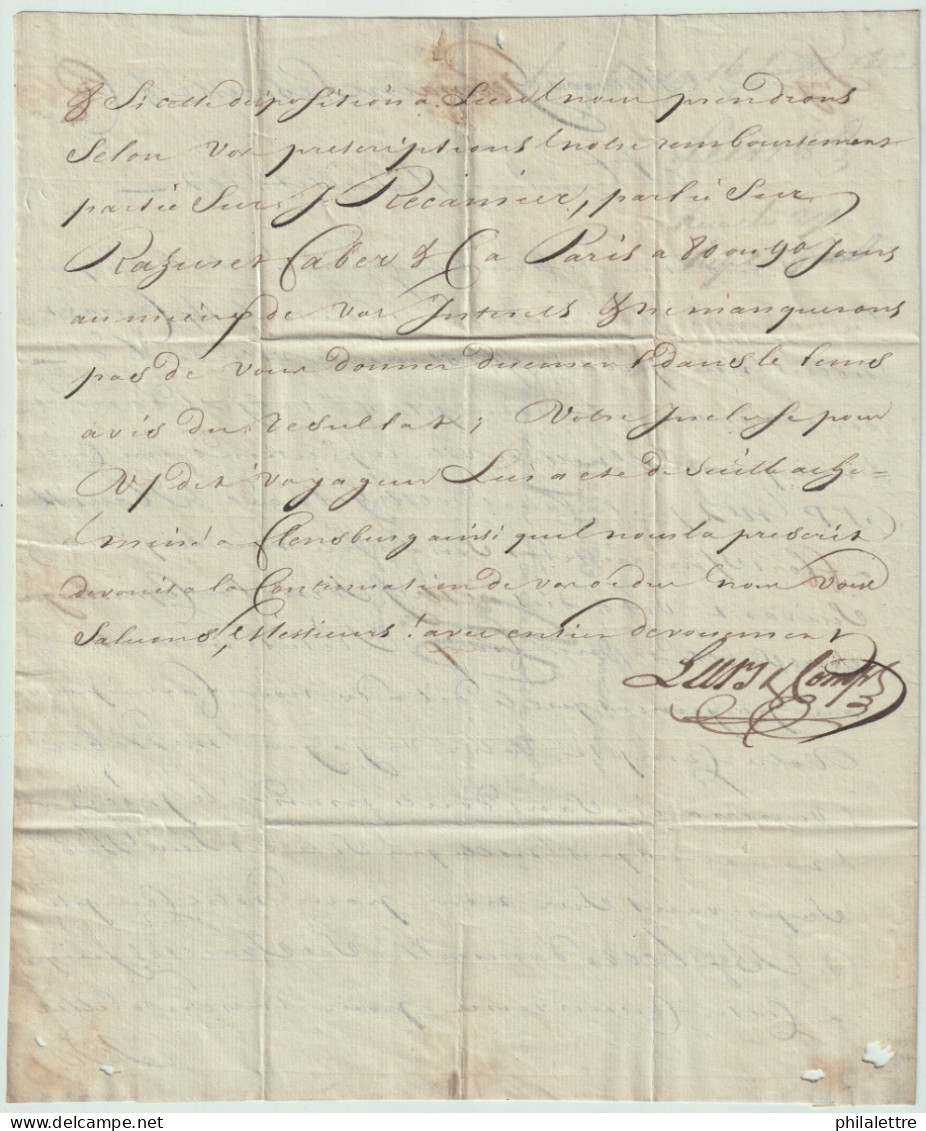 & Si cette disposition a Lieu nous prendrons
Selon vos prescriptions notre remboursement
partie Sur J. Récamier, partie Sur
Raguenet Caber & C a Paris a 80 ou 90 Jours
au mieux de vos Interets & ne manquerons
pas de vous donner duement dans le tems
avis du resultat; Votre Incluse pour
V/ dit voyageur Luis a ete de Suitte ache=
=miné a Flensburg ainsi quel nous la prescrit
devoués a la Continuation de vos ordres nous vous
Saluons, Messieurs! avec entier devouement
Luis & Comp
philalettre